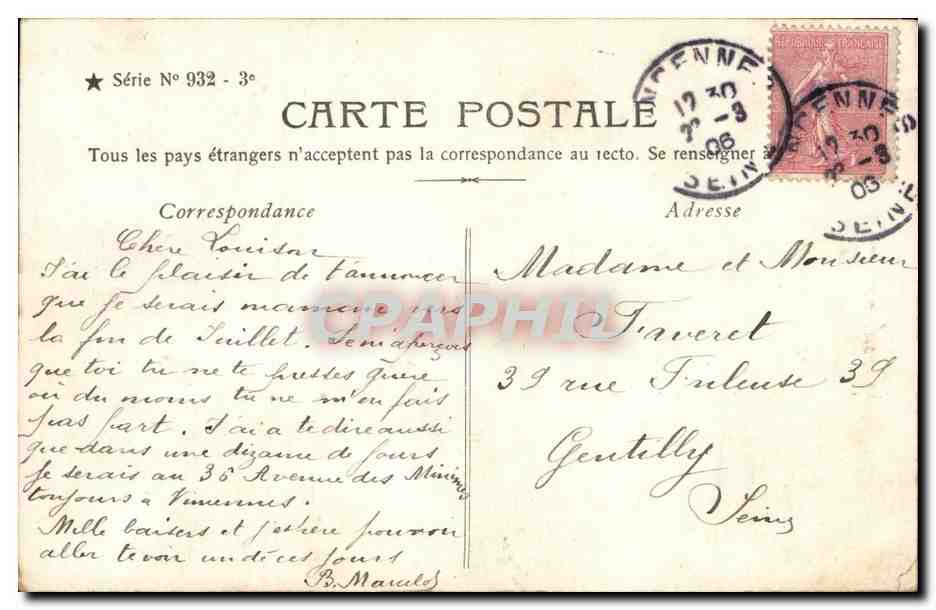 ★ Série Nº 932 - 3e
CARTE POSTALE
Tous les pays étrangers n'acceptent pas la correspondance au recto. Se renseigner à
RÉPUBLIQUE FRANÇAISE
12 30
22 -3
06
SEINE
12 30
22 -3
06
SEINE
Correspondance
Chère Louison
J'ai le plaisir de t'annoncer
que je serais maman vers
la fin de Juillet. Je m'aperçois
que toi tu ne te presses guère
ou du moins tu ne m'en fais
pas part. J'ai a te dire aussi
que dans une dizaine de jours
Je serais au 36 Avenue des Minimes
toujours a Vincennes.
Mille baisers et j'espère pouvoir
aller te voir un de ces jours
B.
Adresse
Madame et Monsieur
Faveret
39 rue Frileuse 39
Gentilly
Seine
CPAPHIL